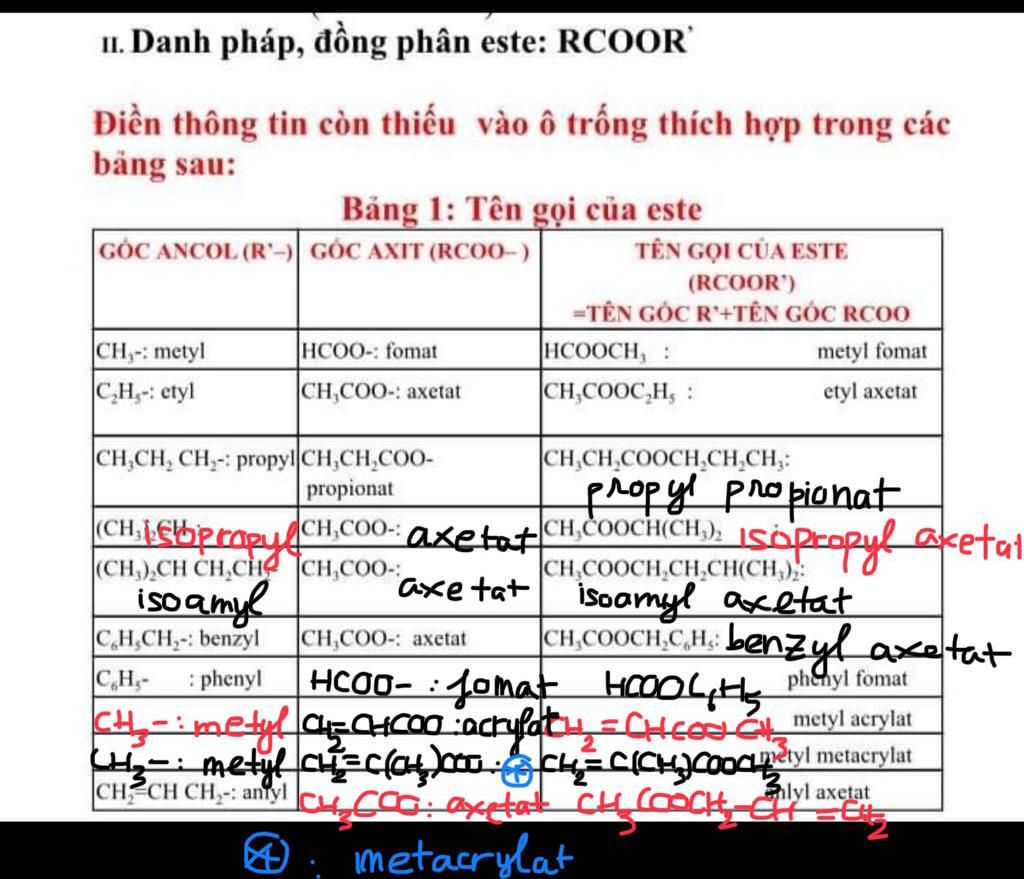 II. Danh pháp, đồng phân este: RCOOR'
Điền thông tin còn thiếu vào ô trống thích hợp trong các
bảng sau:
Bảng 1: Tên gọi của este
GỐC ANCOL (R'–) GỐC AXIT (RCOO– ) TÊN GỌI CỦA ESTE
(RCOOR')
=TÊN GỐC R'+TÊN GỐC RCOO
CH₃-: metyl HCOO-: fomat HCOOCH₃ : metyl fomat
C₂H₅-: etyl CH₃COO-: axetat CH₃COOC₂H₅ : etyl axetat
CH₃CH₂ CH₂-: propyl CH₃CH₂COO- CH₃CH₂COOCH₂CH₂CH₃:
propionat propyl propionat
(CH₃)₂CH-: isopropyl CH₃COO-: axetat CH₃COOCH(CH₃)₂ isopropyl axetat
(CH₃)₂CH CH₂CH₂- CH₃COO-: axetat CH₃COOCH₂CH₂CH(CH₃)₂:
isoamyl isoamyl axetat
C₆H₅CH₂-: benzyl CH₃COO-: axetat CH₃COOCH₂C₆H₅: benzyl axetat
C₆H₅- : phenyl HCOO- : fomat HCOOC₆H₅ phenyl fomat
CH₃-: metyl CH₂=CHCOO :acrylat CH₂=CHCOOCH₃ metyl acrylat
CH₃-: metyl CH₂=C(CH₃)COO: ④ CH₂=C(CH₃)COOCH₃ metyl metacrylat
CH₂=CH CH₂-: anlyl CH₃COO: axetat CH₃COOCH₂-CH=CH₂ anlyl axetat
④ : metacrylat